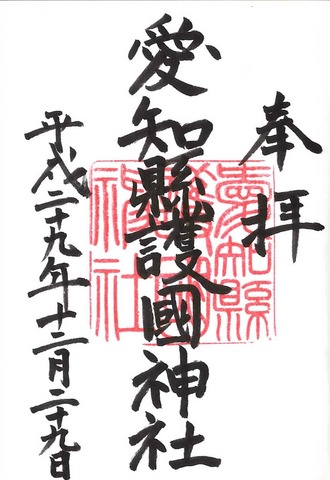 奉拝
愛知縣護國神社
平成二十九年十二月二十九日
愛知縣
護國
神社